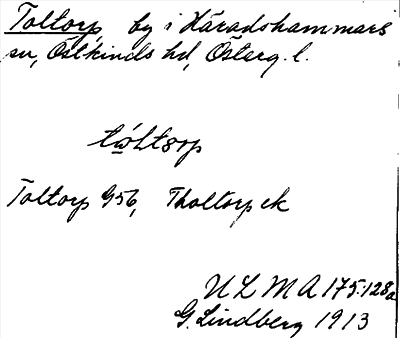 Toltorp, by i Häradshammars
sn, Östkinds hd, Österg. l.
Toltorp G56, Tholtorp ek
ULMA 175:128a
G. Lindberg 1913